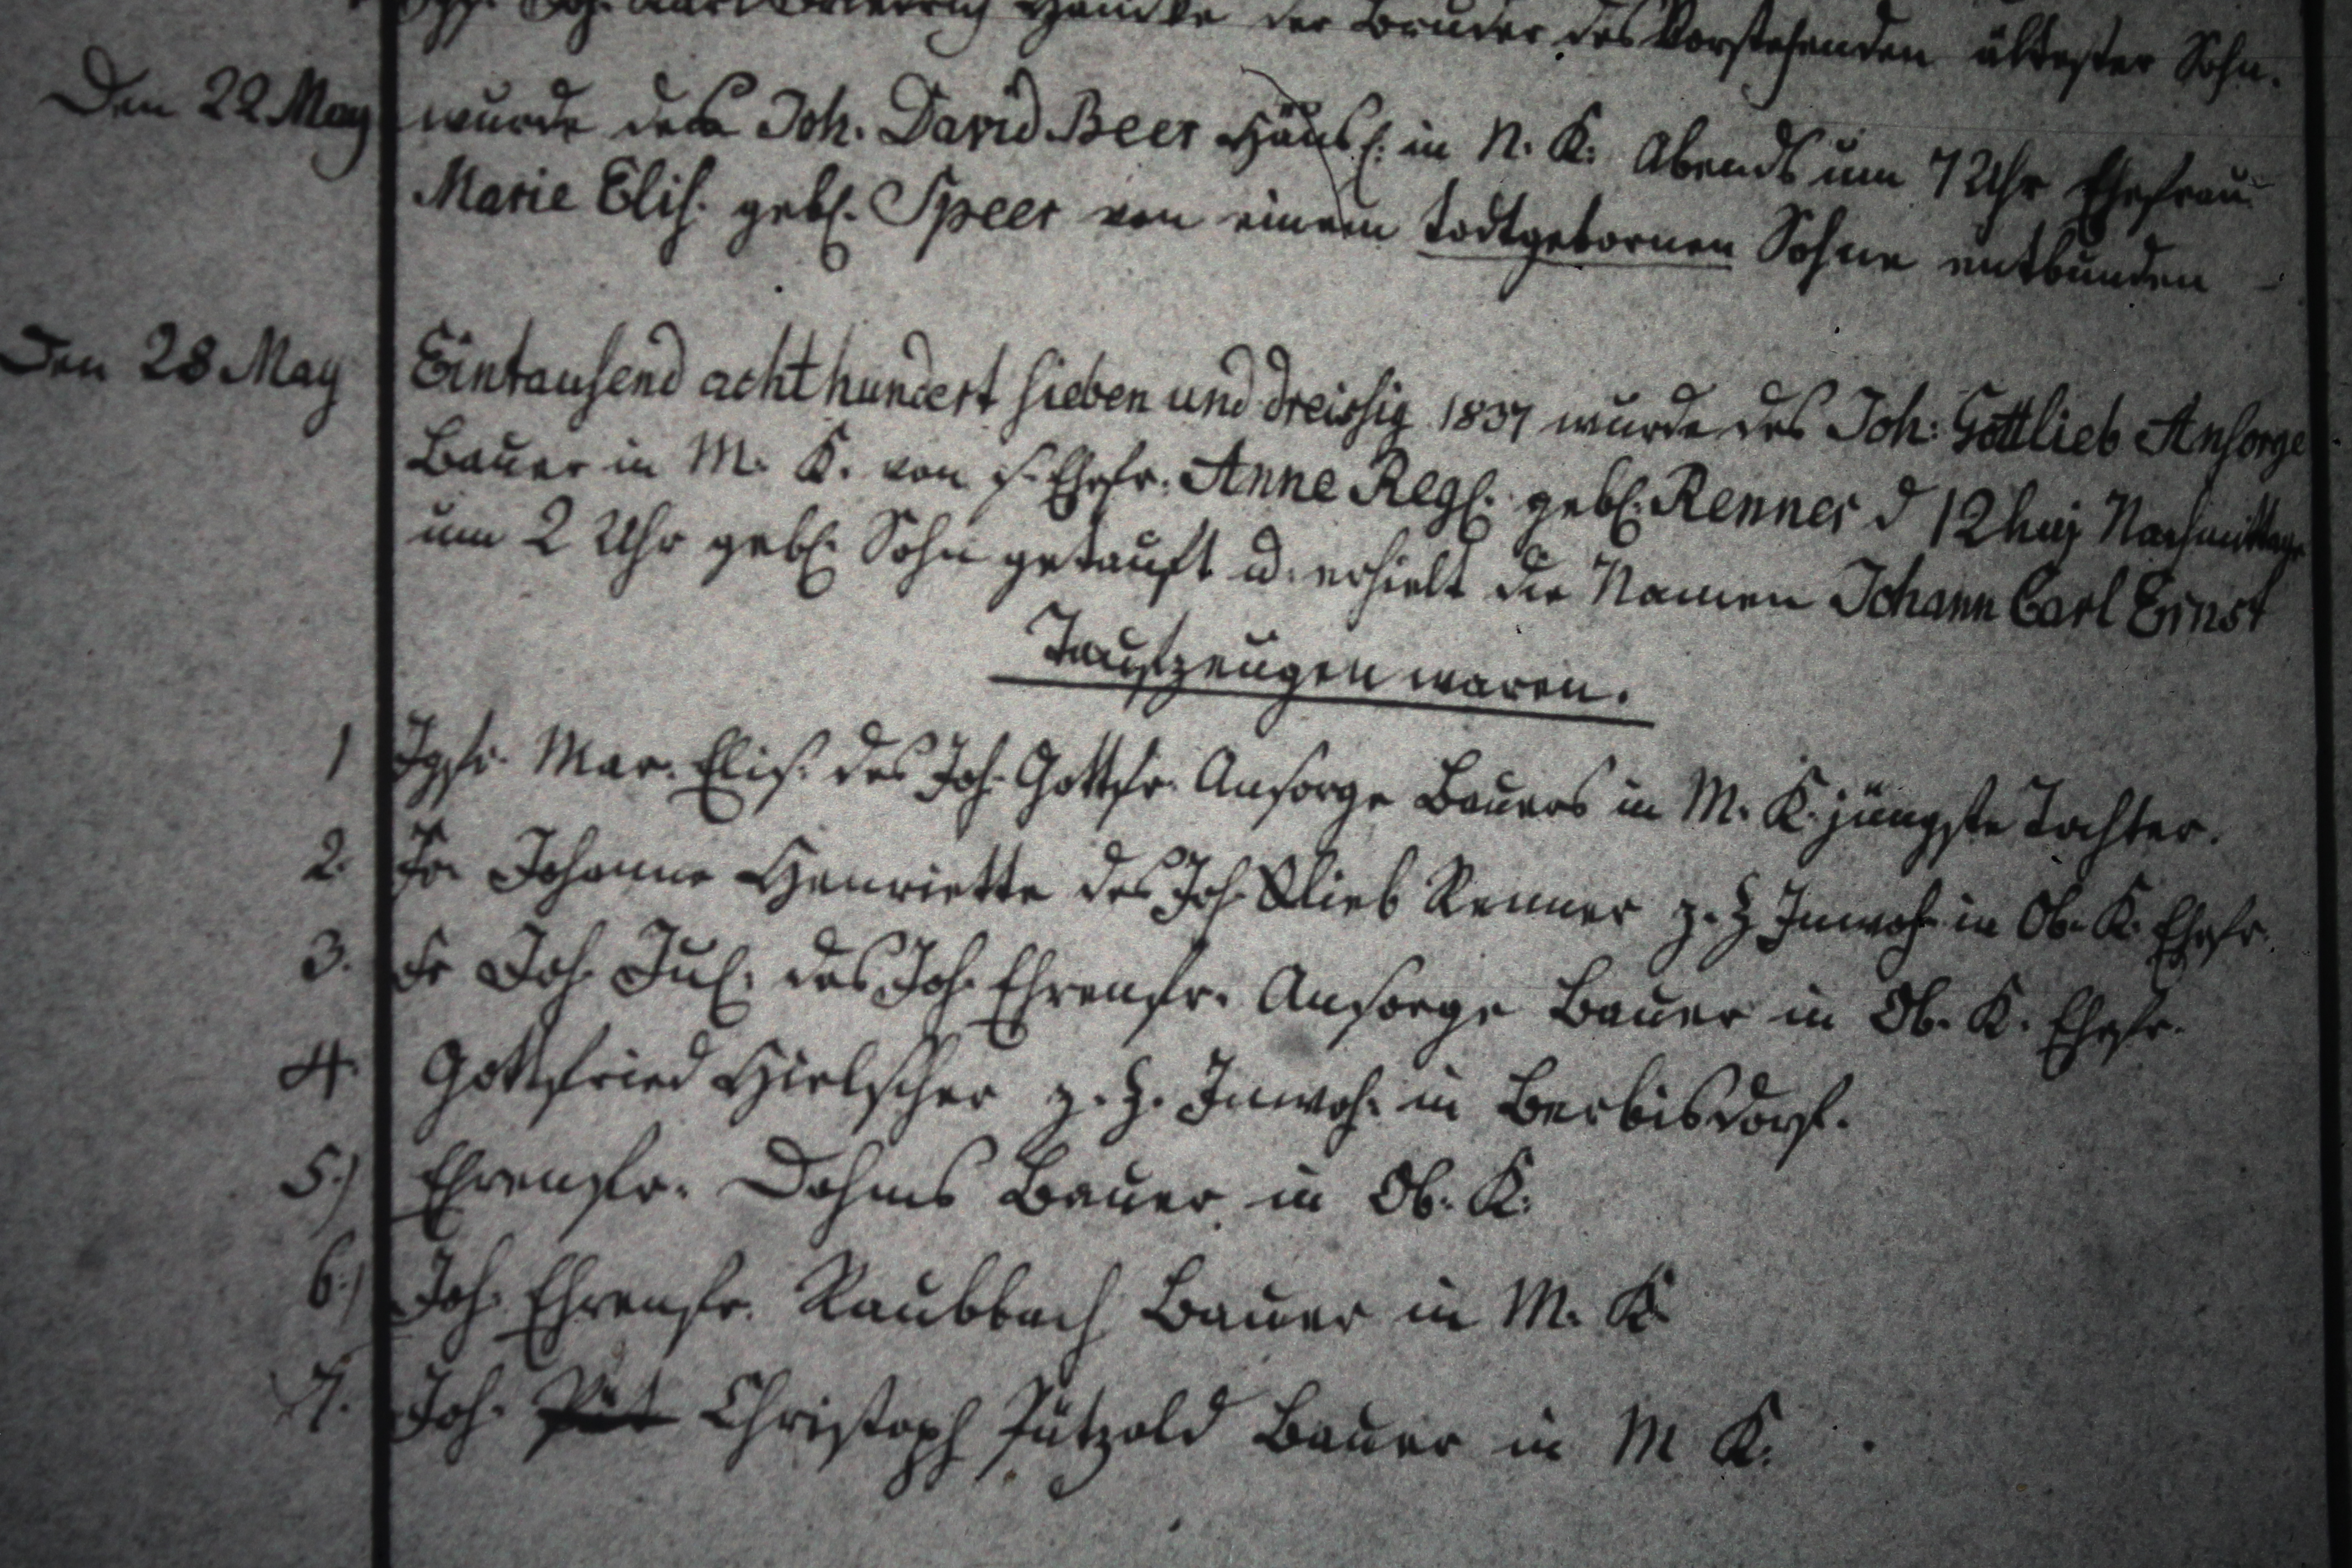 Joh. Karl Friedrich Hancke der Bruder des Vorstehenden ältester Sohn.
Den 22 May wurde dem Joh. David Beer Häusl: in N. K. Abends um 7 Uhr Ehefrau
Marie Elis. gebl. Speer von einem todtgebornen Sohne entbunden
Den 28 May Eintausend achthundert sieben und dreissig 1837 wurde des Joh: Gottlieb Ansorge
Bauer in M. K. von s. Ehefr. Anne Regl. gebl. Renner d 12 huj Nachmittags
um 2 Uhr gebl. Sohn getauft u. erhielt die Namen Johann Carl Ernst
Taufzeugen waren.
1 Jgfr. Mar. Elis. des Joh. Gottfr. Ansorge Bauers in M. K. jüngste Tochter.
2. Fr. Johanne Henriette des Joh. Glieb Renner z. Z Inwoh. in Ob. K. Ehefr.
3. Fr Joh. Jul. des Joh. Ehrenfr. Ansorge Bauer in Ob. K. Ehefr.
4. Gottfried Hielscher z. Z. Inwoh. in Berbisdorf.
5.) Ehrenfr. Dohms Bauer in Ob. K.
6.) Joh. Ehrenfr. Raubbach Bauer in M. K
7. Joh. Christoph Pätzold Bauer in M K.